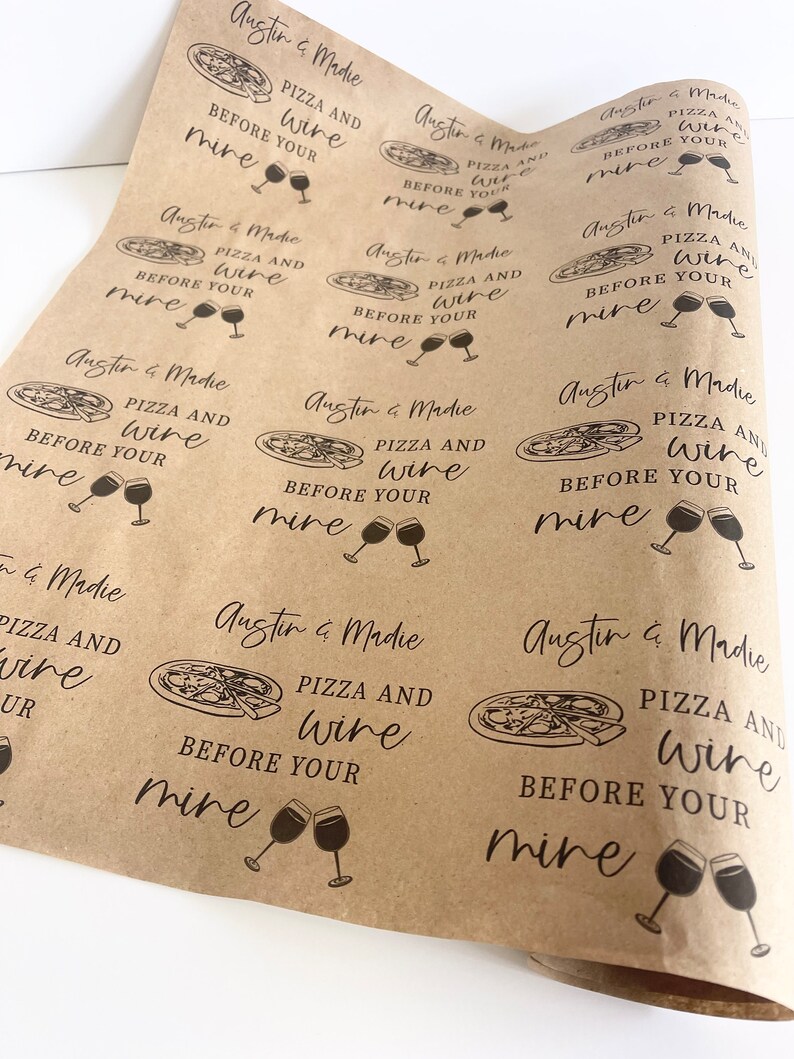 Austin & Madie
PIZZA AND
wine
BEFORE YOUR
mine
Austin & Madie
PIZZA AND
wine
BEFORE YOUR
mine
Austin & Madie
PIZZA AND
wine
BEFORE YOUR
mine
Austin & Madie
PIZZA AND
wine
BEFORE YOUR
mine
Austin & Madie
PIZZA AND
wine
BEFORE YOUR
mine
Austin & Madie
PIZZA AND
wine
BEFORE YOUR
mine
Austin & Madie
PIZZA AND
wine
BEFORE YOUR
mine
Austin & Madie
PIZZA AND
wine
BEFORE YOUR
mine
Austin & Madie
PIZZA AND
wine
BEFORE YOUR
mine
& Madie
PIZZA AND
wine
UR
Austin & Madie
PIZZA AND
wine
BEFORE YOUR
mine
Austin & Madie
PIZZA AND
wine
BEFORE YOUR
mine